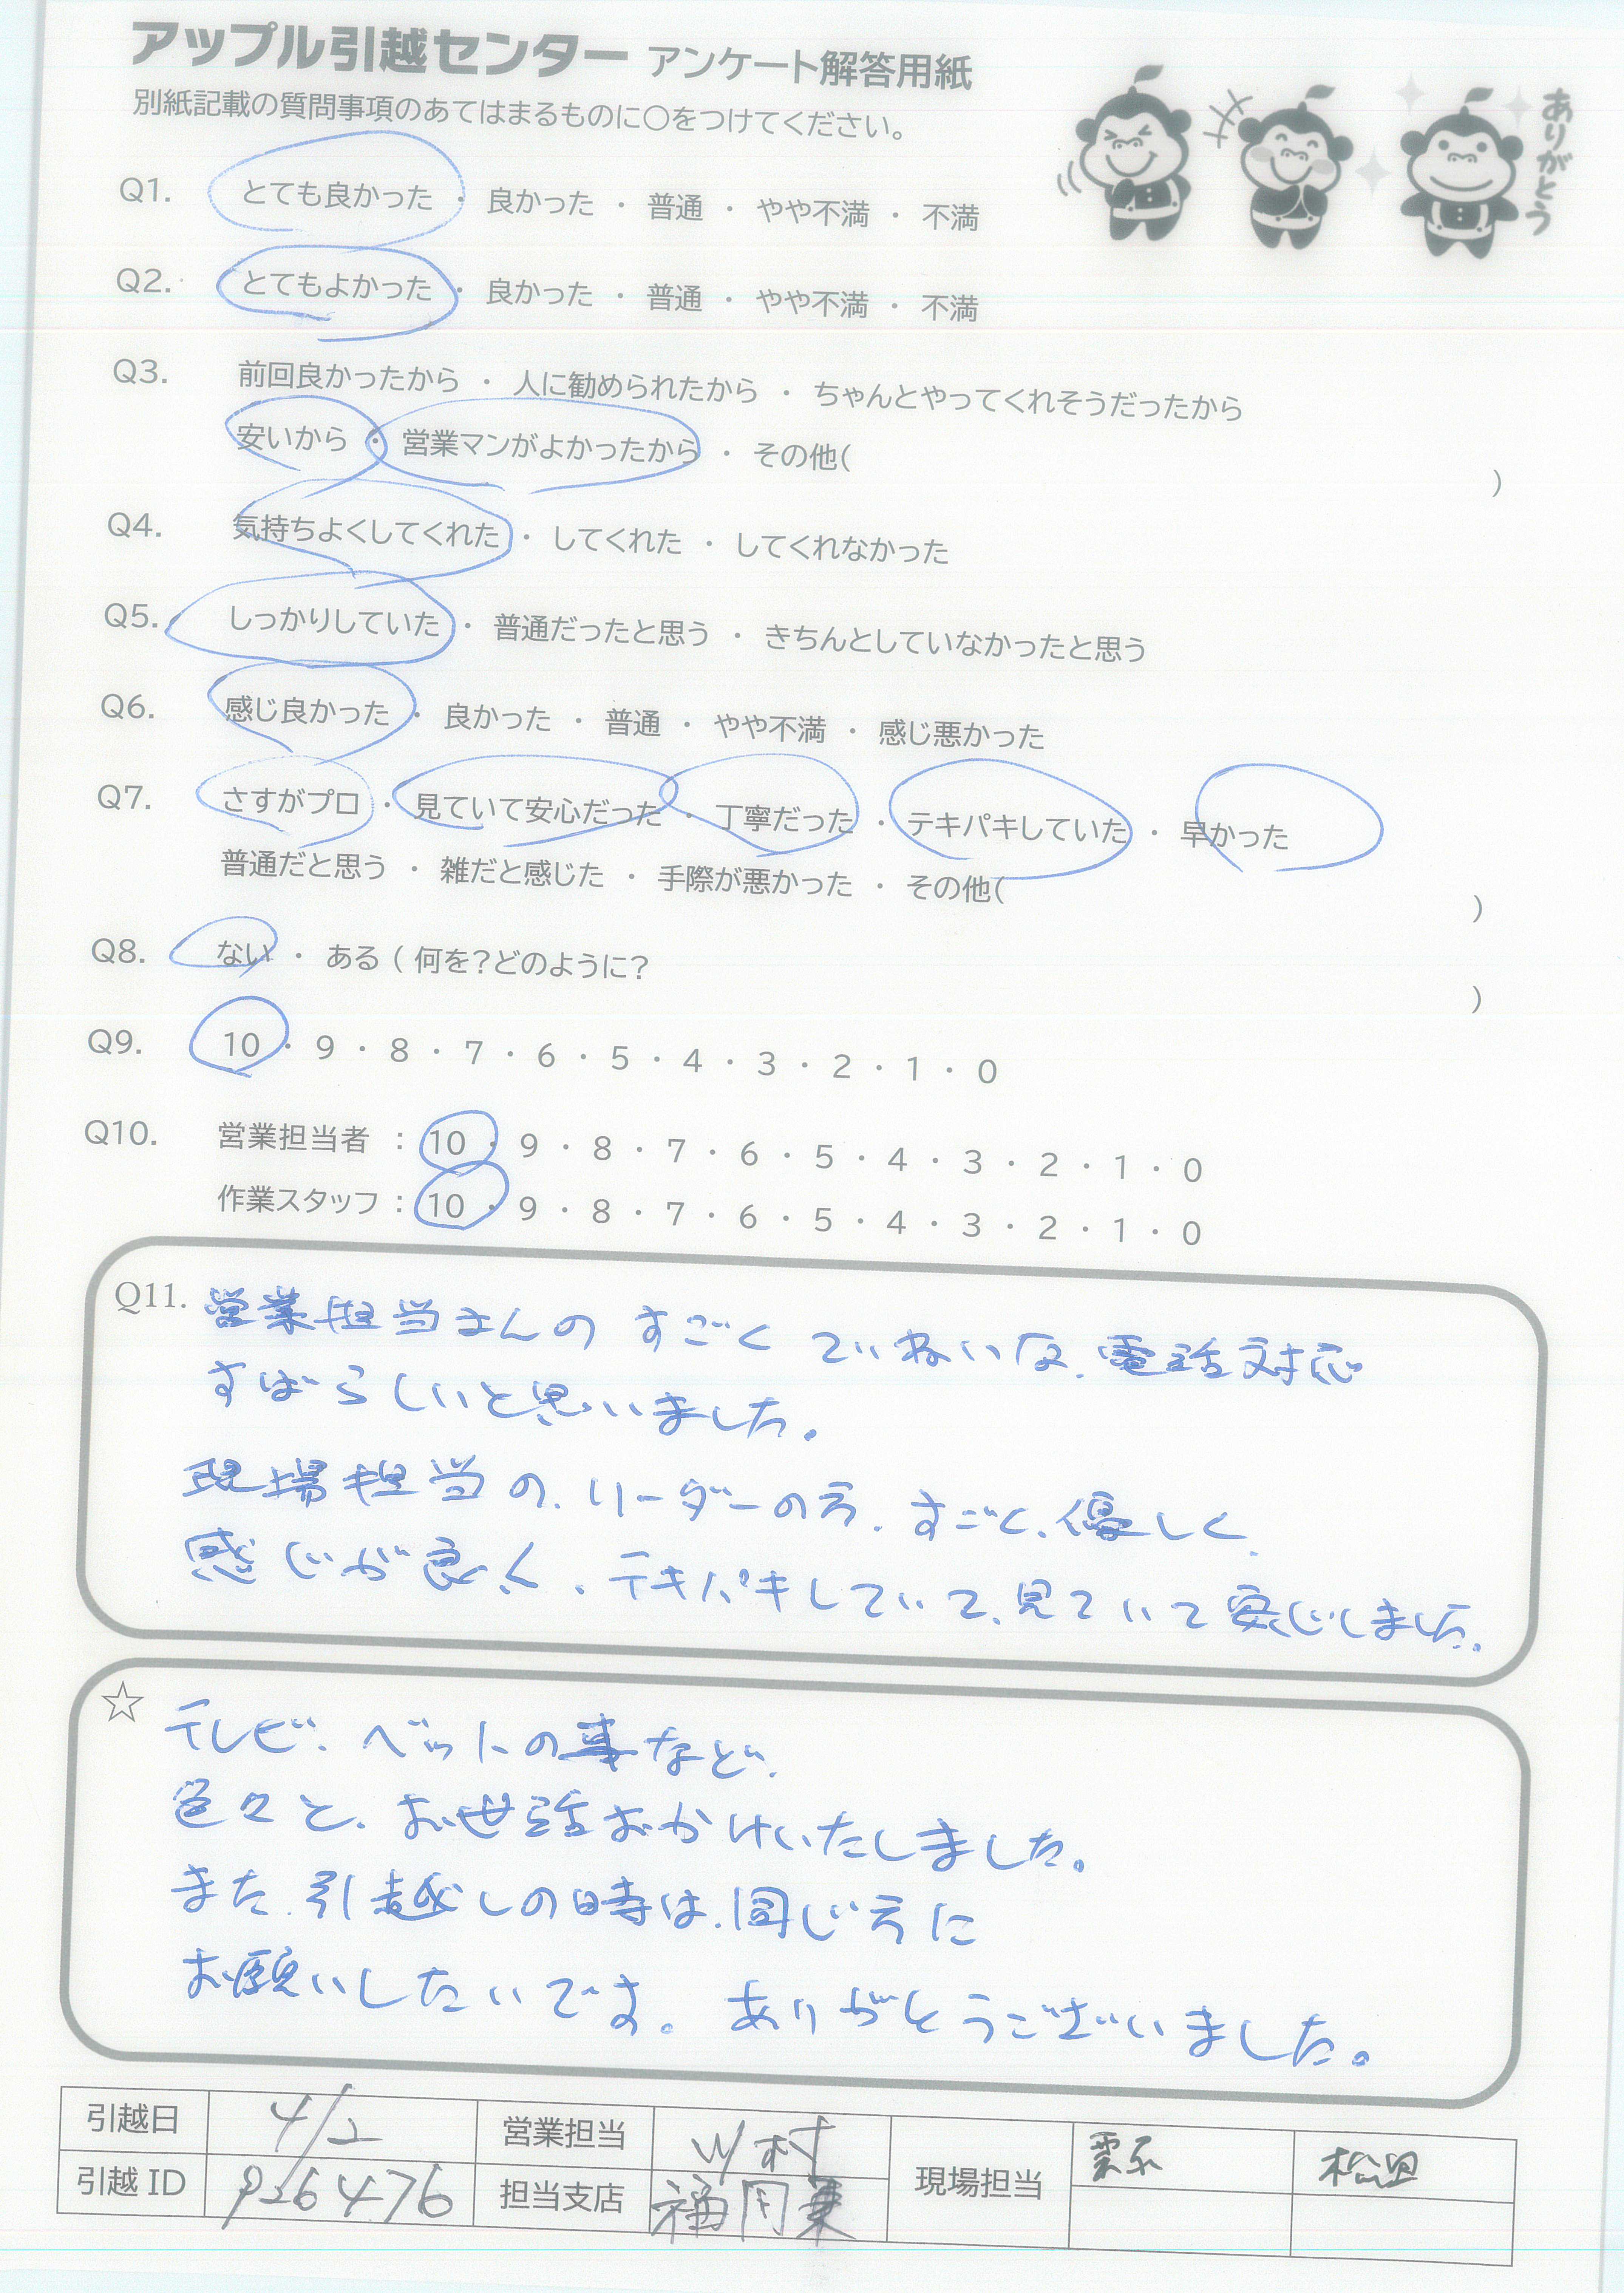 アップル引越センター アンケート解答用紙
別紙記載の質問事項のあてはまるものに○をつけてください。
ありがとう
Q1. とても良かった ・ 良かった ・ 普通 ・ やや不満 ・ 不満
Q2. とてもよかった ・ 良かった ・ 普通 ・ やや不満 ・ 不満
Q3. 前回良かったから ・ 人に勧められたから ・ ちゃんとやってくれそうだったから
安いから ・ 営業マンがよかったから ・ その他( )
Q4. 気持ちよくしてくれた ・ してくれた ・ してくれなかった
Q5. しっかりしていた ・ 普通だったと思う ・ きちんとしていなかったと思う
Q6. 感じ良かった ・ 良かった ・ 普通 ・ やや不満 ・ 感じ悪かった
Q7. さすがプロ ・ 見ていて安心だった ・ 丁寧だった ・ テキパキしていた ・ 早かった
普通だと思う ・ 雑だと感じた ・ 手際が悪かった ・ その他( )
Q8. ない ・ ある ( 何を?どのように? )
Q9. 10 ・ 9 ・ 8 ・ 7 ・ 6 ・ 5 ・ 4 ・ 3 ・ 2 ・ 1 ・ 0
Q10. 営業担当者 : 10 ・ 9 ・ 8 ・ 7 ・ 6 ・ 5 ・ 4 ・ 3 ・ 2 ・ 1 ・ 0
作業スタッフ : 10 ・ 9 ・ 8 ・ 7 ・ 6 ・ 5 ・ 4 ・ 3 ・ 2 ・ 1 ・ 0
Q11. 営業担当さんの すごく ていねいな、電話対応
すばらしいと思いました。
現場担当の、リーダーの方、すごく、優しく、
感じが良く、テキパキしていて、見ていて安心しました。
☆ テレビ、ベットの事など、
色々と、お世話おかけいたしました。
また、引越しの時は、同じ方に
お願いしたいです。ありがとうございました。
引越日 4/2 営業担当 村 現場担当
引越ID 926476 担当支店 福岡東